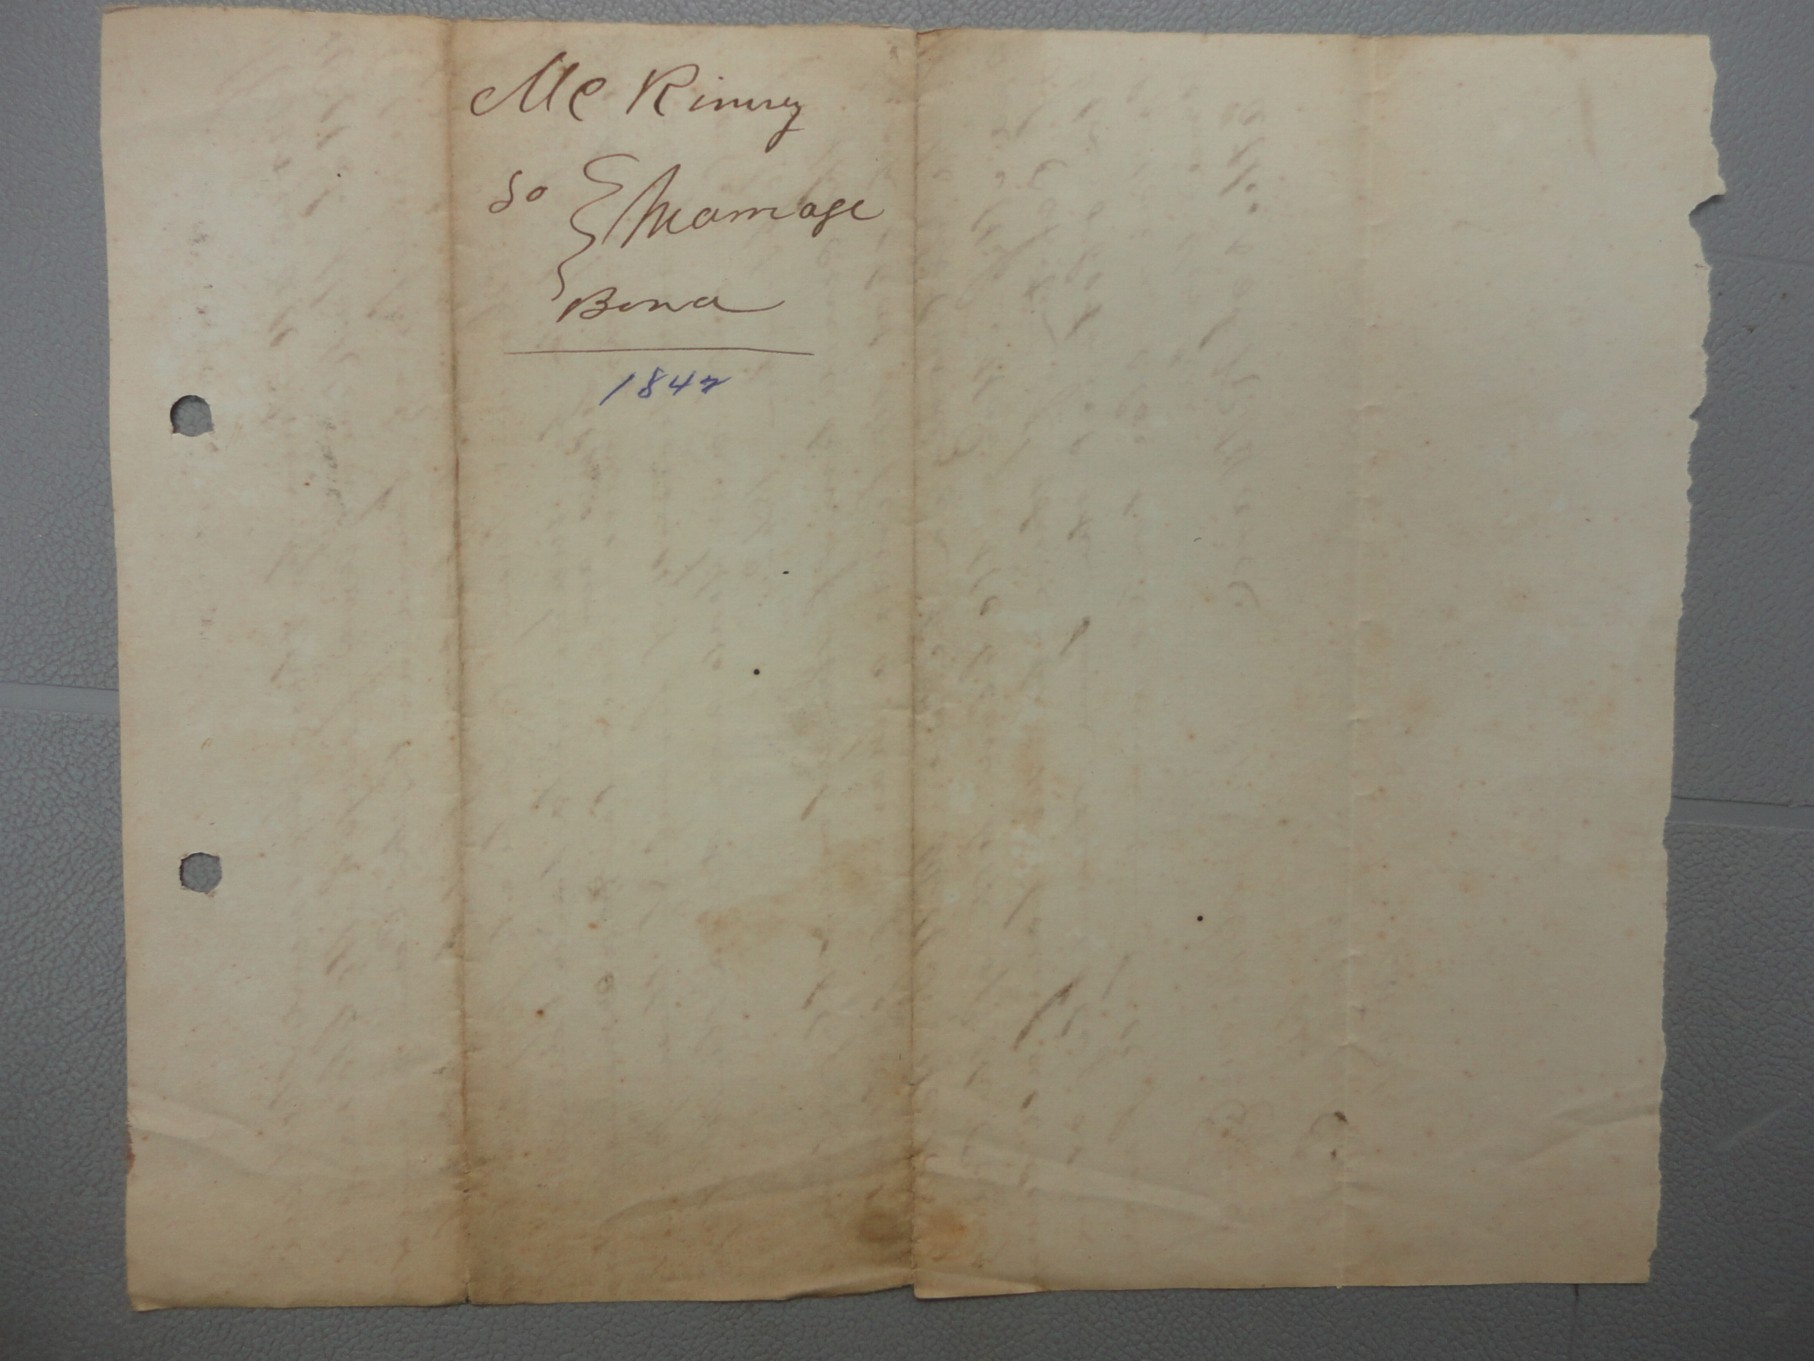 McKinney
To } Marriage
Bond
1842